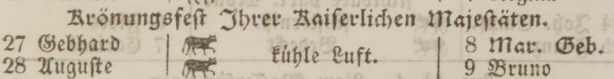 Krönungsfest Ihrer Kaiserlichen Majestäten.
27 Gebhard kühle Luft. 8 Mar. Geb.
28 Auguste 9 Bruno